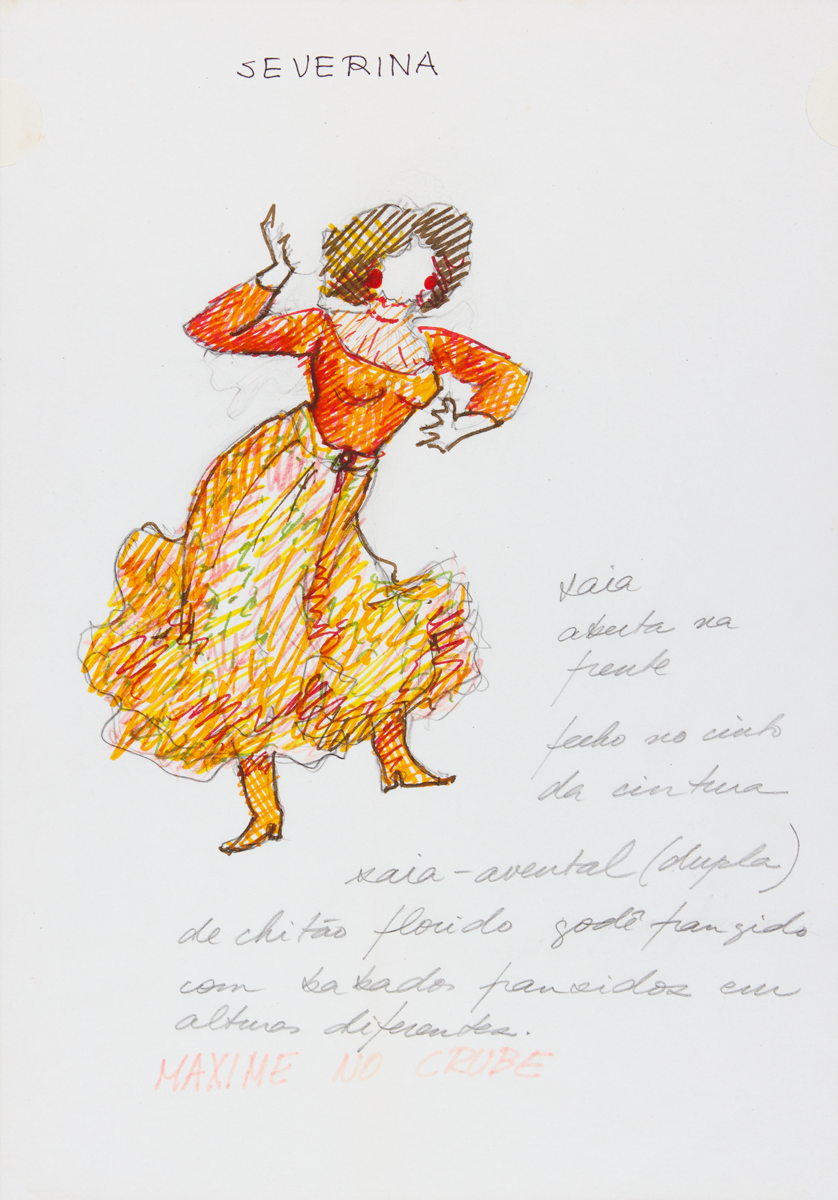 SEVERINA
saia
aberta na
frente
fecho no cinto
da cintura
saia-avental (dupla)
de chitão florido godê franzido
com babados franzidos em
alturas diferentes.
MAXIME NO CRUBE